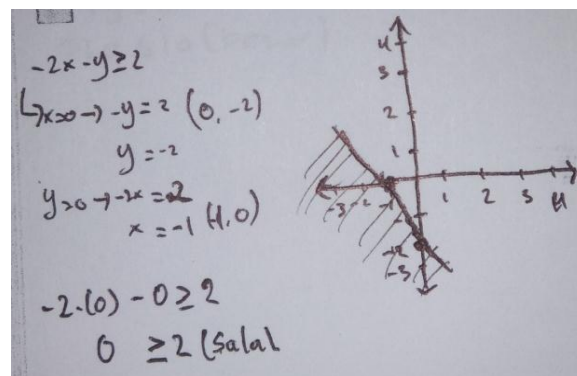 -2x - y ≥ 2
↳ x=0 → -y = 2 (0, -2)
y = -2
y=0 → -2x = 2
x = -1 (-1, 0)
-2.(0) - 0 ≥ 2
0 ≥ 2 (Salah
4
3
2
1
-3 -2 -1 1 2 3 4
-2
-3